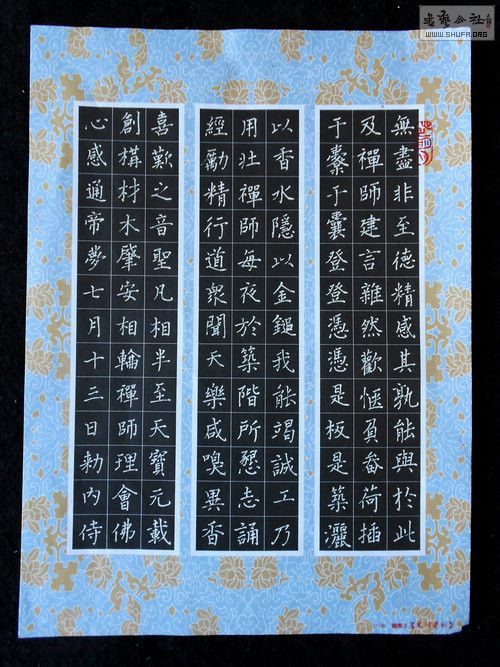 無盡非至德精感其孰能與於此
及禪師建言雜然歡愜負畚荷插
于橐于囊登登憑憑是板是築灑
以香水隱以金鎚我能竭誠工乃
用壯禪師每夜於築階所懇志誦
經勵精行道衆聞天樂咸嗅異香
喜歎之音聖凡相半至天寶元載
創構材木肇安相輪禪師理會佛
心感通帝夢七月十三日勅內侍
書藝公社
WWW.SHUFA.ORG